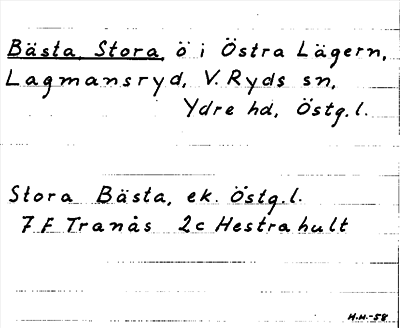 Bästa, Stora, ö i Östra Lägern,
Lagmansryd, V. Ryds sn,
Ydre hd, Östg.l.
Stora Bästa, ek. Östg.l.
7 F Tranås 2c Hestrahult
H.H.-58